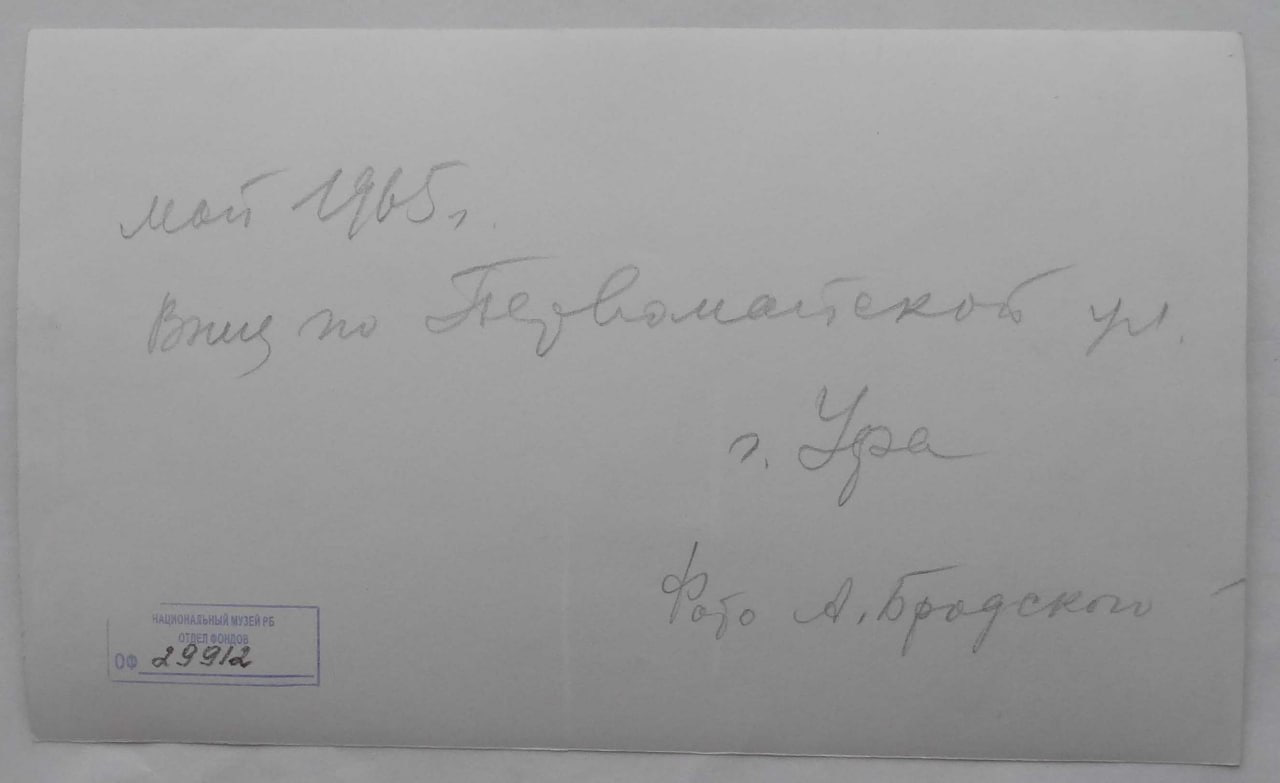 май 1965 г.
Вниз по Первомайской ул.
г. Уфа
Фото А. Бродского
НАЦИОНАЛЬНЫЙ МУЗЕЙ РБ
ОТДЕЛ ФОНДОВ
ОФ 29912